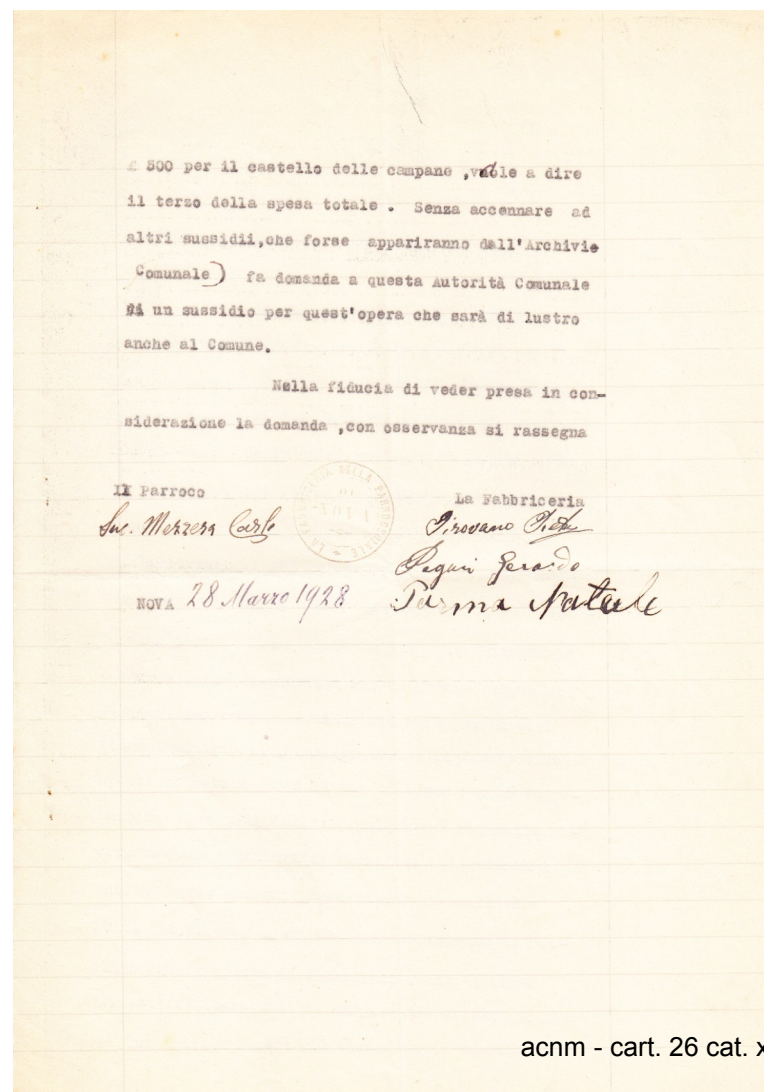 £ 500 per il castello delle campane ,vale a dire
il terzo della spesa totale . Senza accennare ad
altri sussidii,che forse appariranno dall'Archivie
Comunale) fa domanda a questa Autorità Comunale
di un sussidio per quest'opera che sarà di lustro
anche al Comune.
Nella fiducia di veder presa in con-
siderazione la domanda ,con osservanza si rassegna
Il Parroco
La Fabbriceria
Sac. Mezzera Carlo
Pirovano
Pagani Gerardo
NOVA 28 Marzo 1928
Parma Natale
LA FABBRICERIA DELLA PARROCCHIALE
DI
NOVA
acnm - cart. 26 cat. x